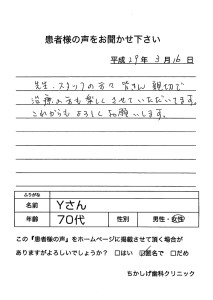 患者様の声をお聞かせ下さい
平成29年3月16日
先生・スタッフの方々皆さん親切で
治療の方も楽しくさせていただいてます。
これからもよろしくお願いします。
ふりがな
名前 Yさん
年齢 70代 性別 男性・女性
この『患者様の声』をホームページに掲載させて頂く場合が
ありますがよろしいでしょうか? □はい ☑匿名で □だめ
ちかしげ歯科クリニック